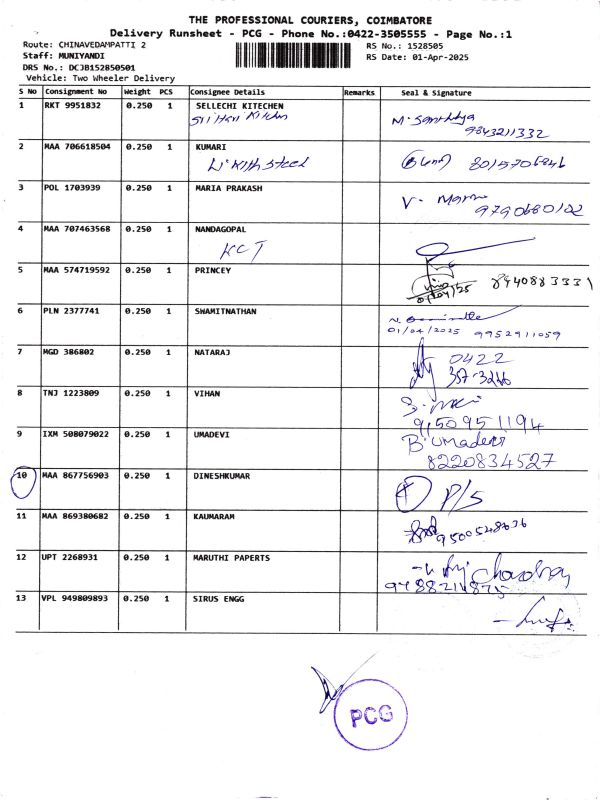 THE PROFESSIONAL COURIERS, COIMBATORE
Delivery Runsheet - PCG - Phone No.:0422-3505555 - Page No.:1
Route: CHINAVEDAMPATTI 2 RS No.: 1528505
Staff: MUNIYANDI RS Date: 01-Apr-2025
DRS No.: DCJB152850501
Vehicle: Two Wheeler Delivery
S No Consignment No Weight PCS Consignee Details Remarks Seal & Signature
1 RKT 9951832 0.250 1 SELLECHI KITECHEN
Kitchen M. Santhiya
9843211332
2 MAA 706618504 0.250 1 KUMARI
Steel 8015706846
3 POL 1703939 0.250 1 MARIA PRAKASH
V. 9790680102
4 MAA 707463568 0.250 1 NANDAGOPAL
KCT
5 MAA 574719592 0.250 1 PRINCEY 8940883331
01/04/25
6 PLN 2377741 0.250 1 SHAMITNATHAN
01/04/2025 9952911059
7 MGD 386802 0.250 1 NATARAJ 0422
357-3266
8 TNJ 1223809 0.250 1 VIHAN
9150951194
9 IXM 508079022 0.250 1 UMADEVI B. Umadevi
8220834527
10 MAA 867756903 0.250 1 DINESHKUMAR P/S
11 MAA 869380682 0.250 1 KAUMARAM
9500548636
12 UPT 2268931 0.250 1 MARUTHI PAPERTS
9488214875
13 VPL 949809893 0.250 1 SIRUS ENGG
PCG